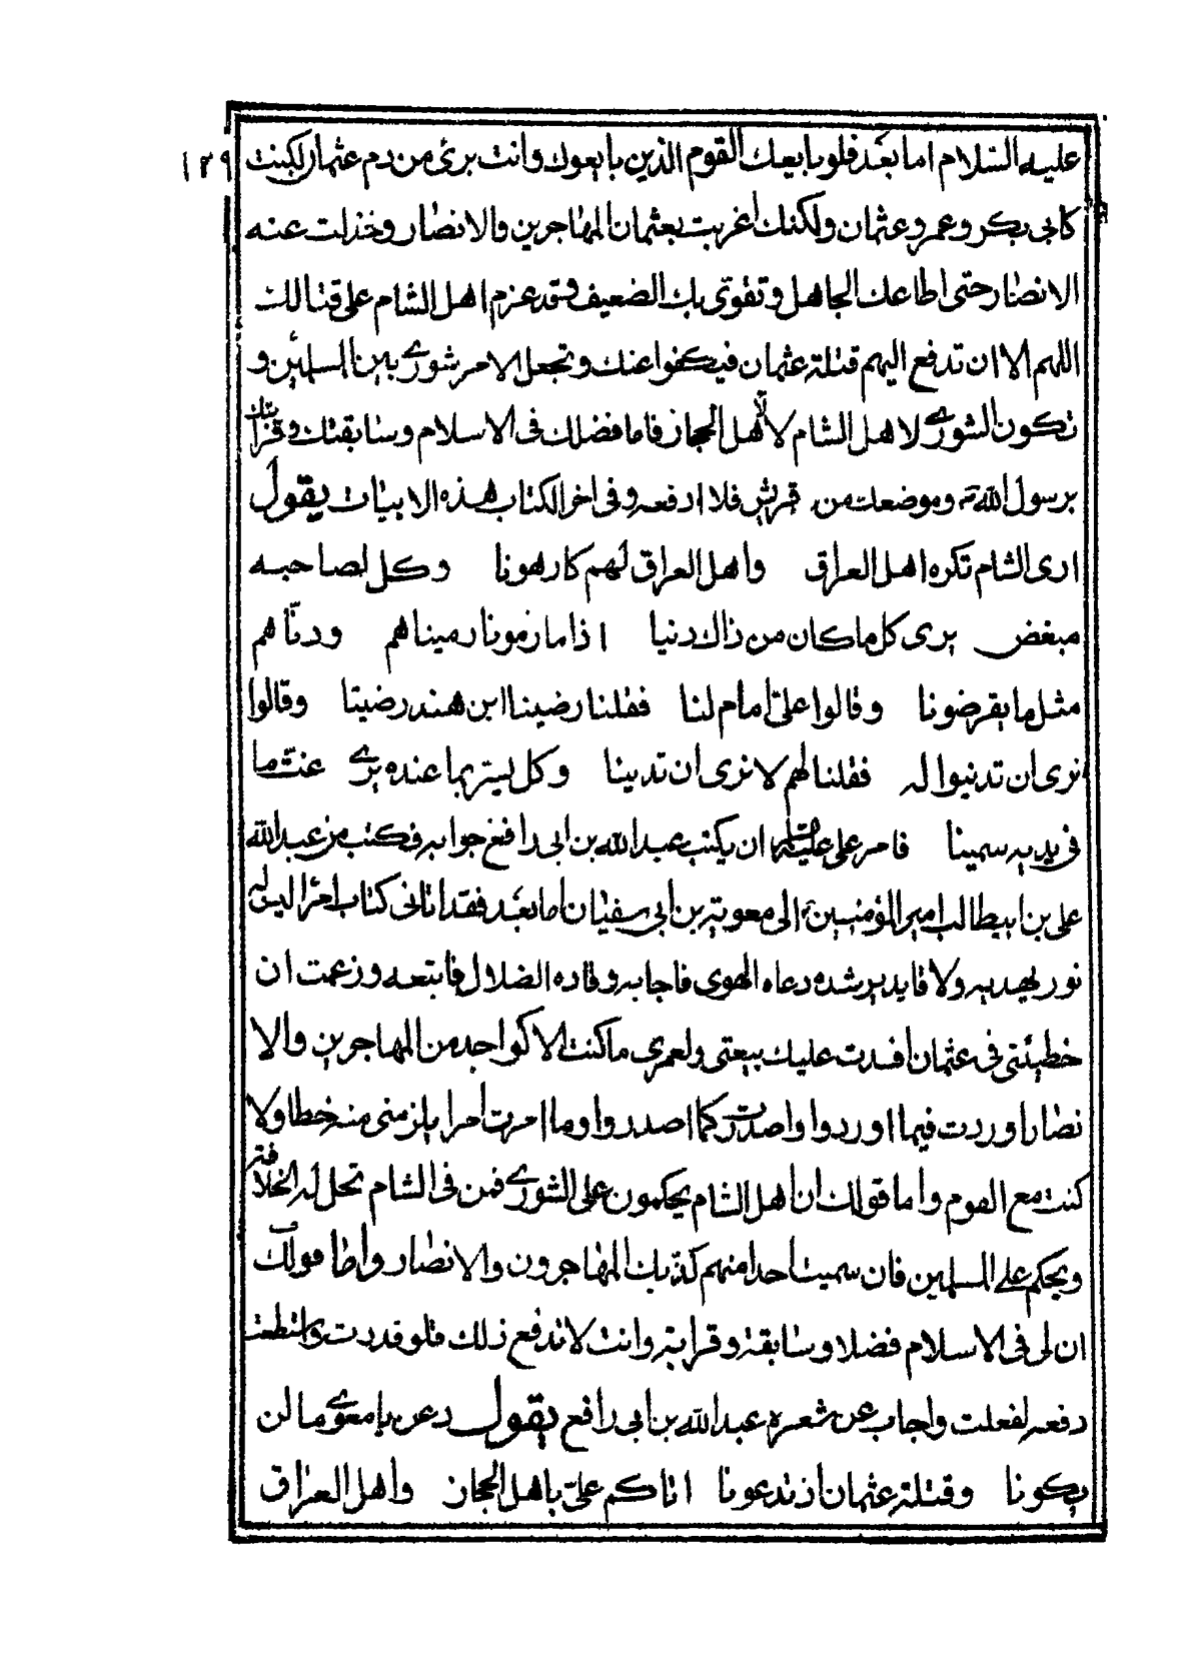 ١٣٩
عليه السّلام اما بعد فلو بايعك القوم الذين بايعوك وانت برئ من دم عثمان لكنت
كابى بكر وعمر وعثمان ولكنك اغريت بعثمان المهاجرين والانصار وخذلت عنه
الانصار حتى اطاعك الجاهل وتقوّى بك الضعيف وقد عزم اهل الشام على قتالك
اللهم الا ان تدفع اليهم قتلة عثمان فيكفوا عنك وتجعل الامر شورى بين المسلمين و
تكون الشورى لاهل الشام لا لاهل الحجاز فاما فضلك فى الاسلام وسابقتك وقرابتك
برسول الله ص وموضعك من قريش فلا ادفعه وفى اخر الكتاب هذه الابيات يقول
ارى الشام تكره اهل العراق واهل العراق لهم كارهونا وكل لصاحبه
مبغض يرى كل ما كان من ذاك دنيا اذا ما رمونا رميناهم ودنّاهم
مثل ما يقرضونا وقالوا علىّ امام لنا فقلنا رضينا ابن هند رضيتا وقالوا
نرى ان تدنيوا له فقلنا لهم لا نرى ان تدينا وكل يستر بما عنده يرى غث ما
فى يديه سمينا فامر على عليه السلام ان يكتب عبد الله بن ابى رافع جوابه فكتب من عبد الله
على بن ابيطالب امير المؤمنين الى معوية بن ابى سفيان اما بعد فقد اتانى كتاب امرء ليس له
نور يهديه ولا قايد يرشده دعاه الهوى فاجابه وقاده الضلال فابتعه وزعمت ان
خطيئتى فى عثمان افسدت عليك بيعتى ولعمرى ما كنت الا كواحد من المهاجرين والا
نصار اوردت فيما اوردوا واصدرت كما اصدروا وما امرت امرا يلزمنى منه خطا ولا
كنت مع القوم واما قولك ان اهل الشام يحكمون على الشورى فمن فى الشام تحل له الخلافة
ويحكم على المسلمين فان سميت احدا منهم كذّبك المهاجرون والانصار واما قولك
ان لى فى الاسلام فضلا وسابقة وقرابة وانت لا تدفع ذلك فلو قدرت واستطعت
دفعه لفعلت واجاب عن شعره عبد الله بن ابى رافع يقول دعن يا معوى ما لن
يكونا وقتلة عثمان اذ تدعونا اتاكم علىّ باهل الحجاز واهل العراق